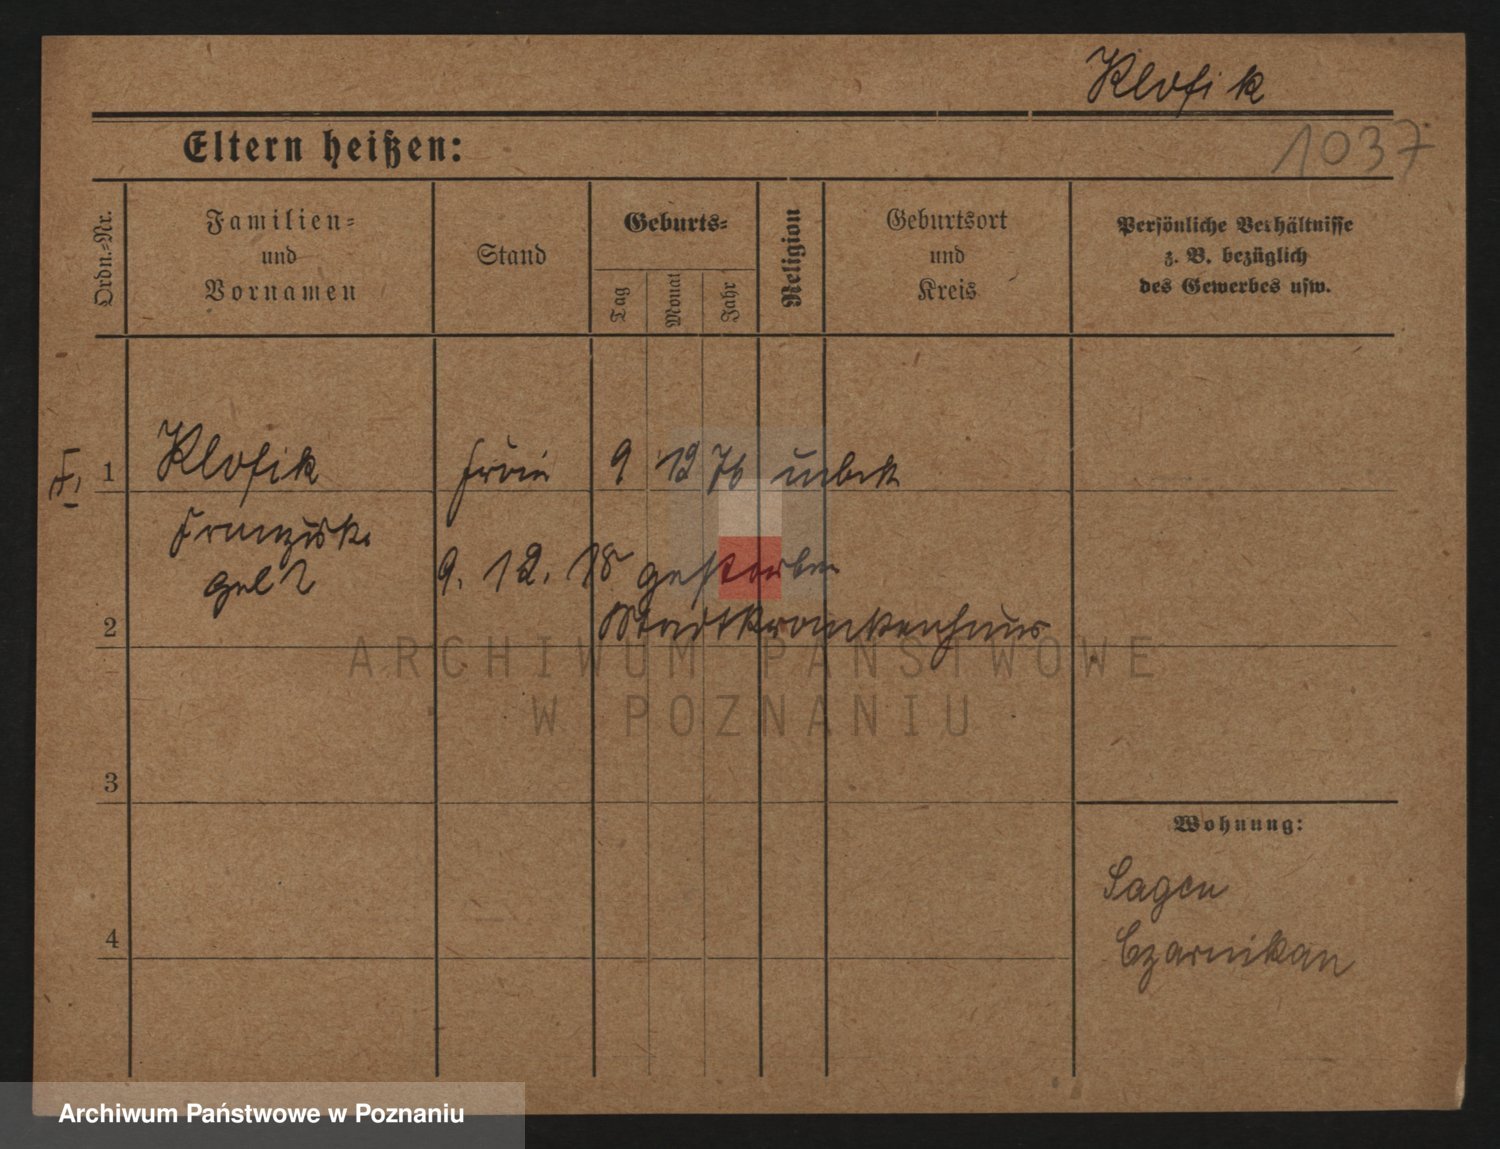 Klofik
Eltern heißen:
1037
Ordn.-Nr.
Familien=
und
Vornamen
Stand
Geburts=
Tag
Monat
Jahr
Religion
Geburtsort
und
Kreis
Persönliche Verhältnisse
z. B. bezüglich
des Gewerbes usw.
1 Klofik 9 12 76 unbek
Franziska
geb ?
9. 12. 18 gestorben
2 Stadtkrankenhaus
3
Wohnung:
Sagen
4 Czarnikau
ARCHIWUM PAŃSTWOWE
W POZNANIU
Archiwum Państwowe w Poznaniu